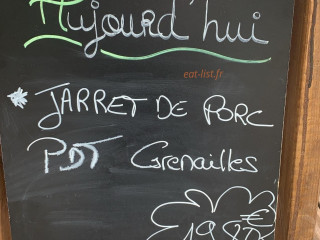 Aujourd'hui
eat-list.fr
* JARRET DE PORC
PDT Grenailles